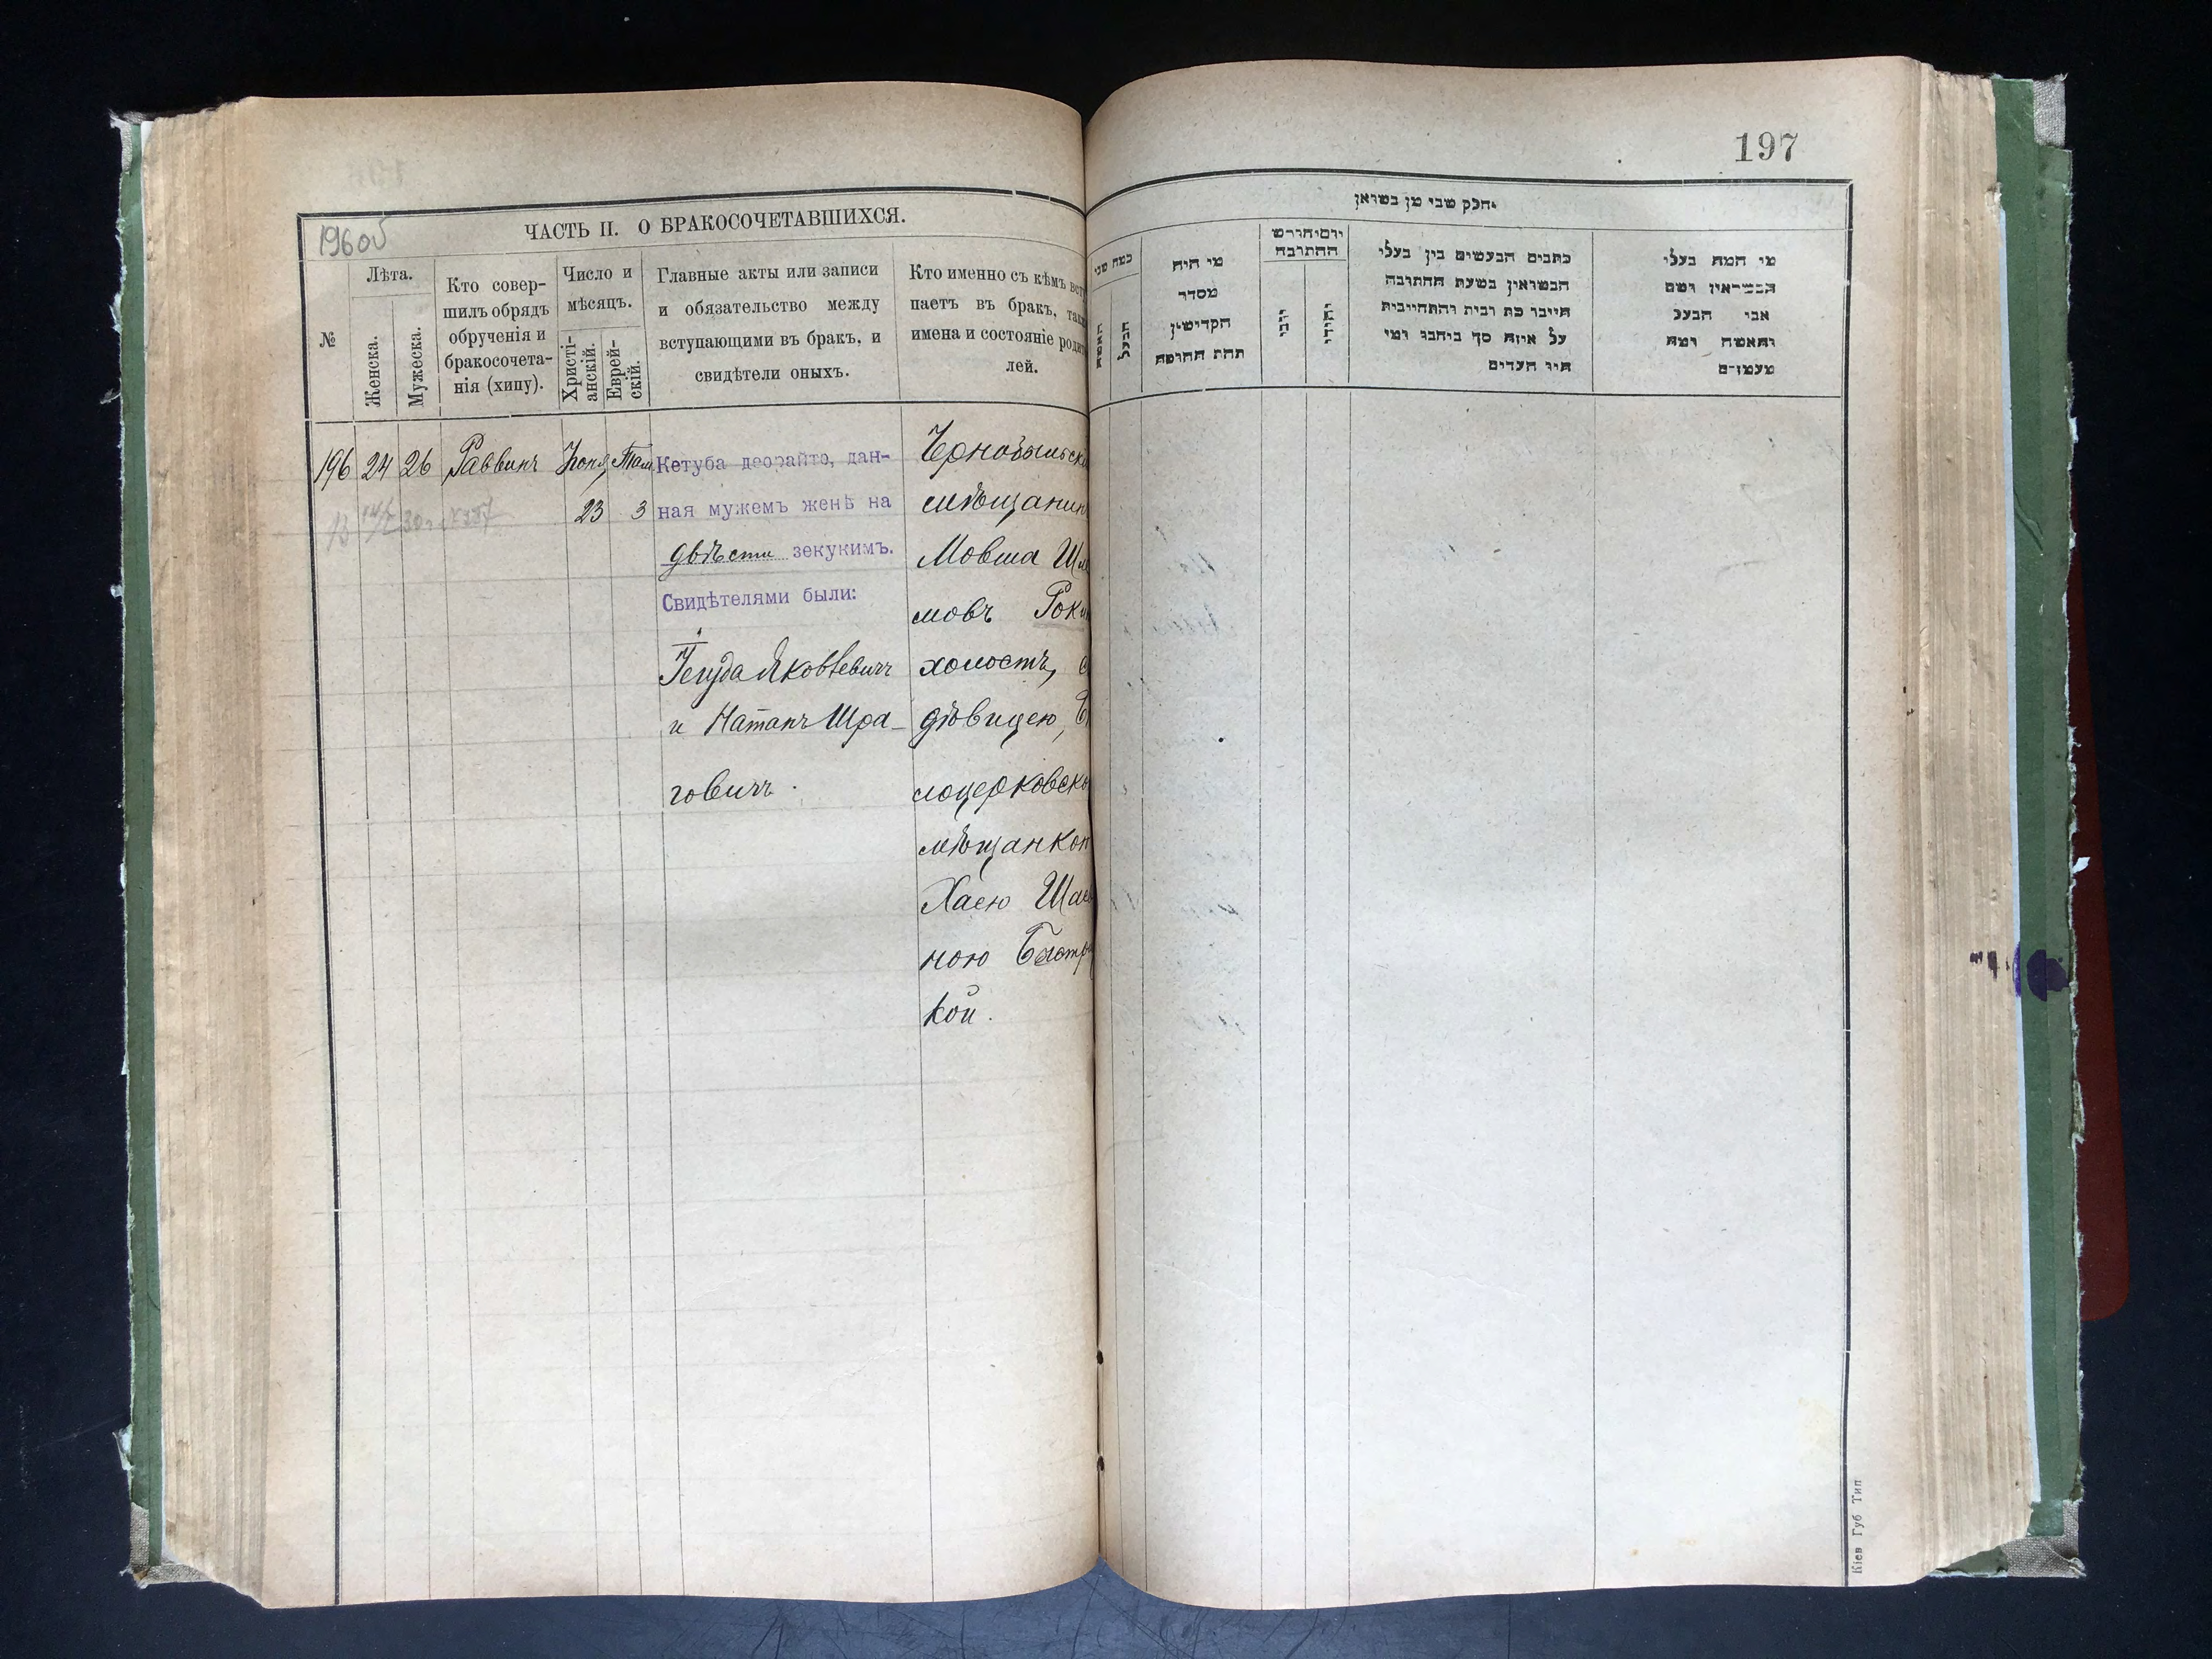 197
196об
ЧАСТЬ II. О БРАКОСОЧЕТАВШИХСЯ.
№
Лѣта.
Женска.
Мужеска.
Кто совер-
шилъ обрядъ
обрученія и
бракосочета-
нія (хипу).
Число и
мѣсяцъ.
Христі-
анскій.
Еврей-
скій.
Главные акты или записи
и обязательство между
вступающими въ бракъ, и
свидѣтели оныхъ.
Кто именно съ кѣмъ всту
паетъ въ бракъ, такж
имена и состояніе родит
лей.
196 24 26 Раввинъ
23 3
Кетуба деорайто, дан-
ная мужемъ женѣ на
двѣсти зекукимъ.
Свидѣтелями были:
Іегуда Яковлевичъ
и Натанъ Шра-
говичъ.
Чернобыльск
мѣщанин
Мовша Шл
мовъ Рок
холостъ, с
дѣвицею, Б
лоцерковско
мѣщанкою
Хаею Шае
ною Быстри
кой.
חלק שני מן נשואין.
כמה שני
האשה
הבעל
מי היה
מסדר
הקדושין
תחת החופה
יום וחודש
החתונה
יוני
יהודי
כתבים הנעשים בין בעלי
הנשואין בשעת החתונה
על איזה סך ניתנו ומי
היו העדים
מי המה בעלי
הנשואין ושם
אבי הבעל
והאשה ומה
מעמדם
Кіев Губ Тип